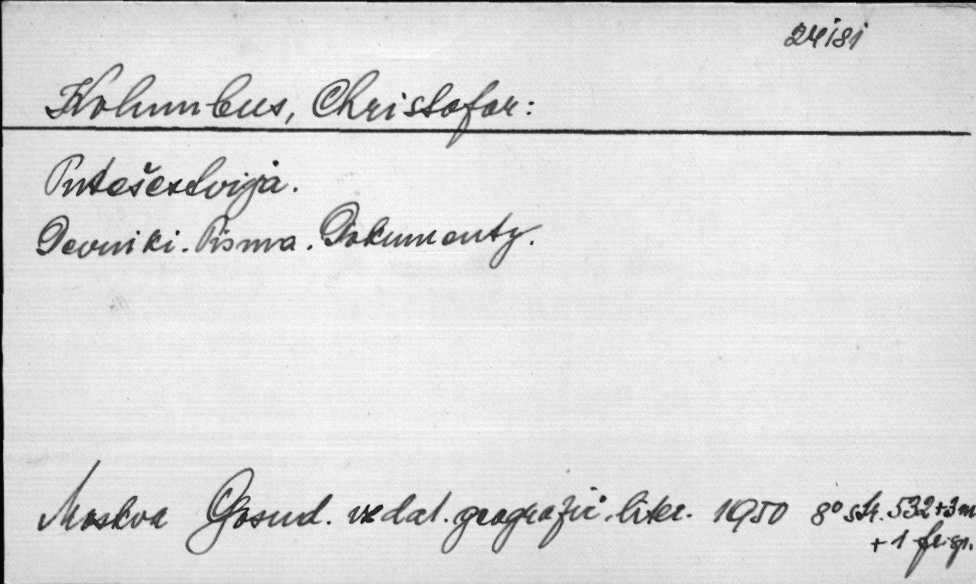 24181
Kolumbus, Christofor:
Putešestvija.
Devniki. Pisma. Dokumenty.
Moskva Gosud. izdat. geografič. liter. 1950 8° str. 532+3m
+ 1